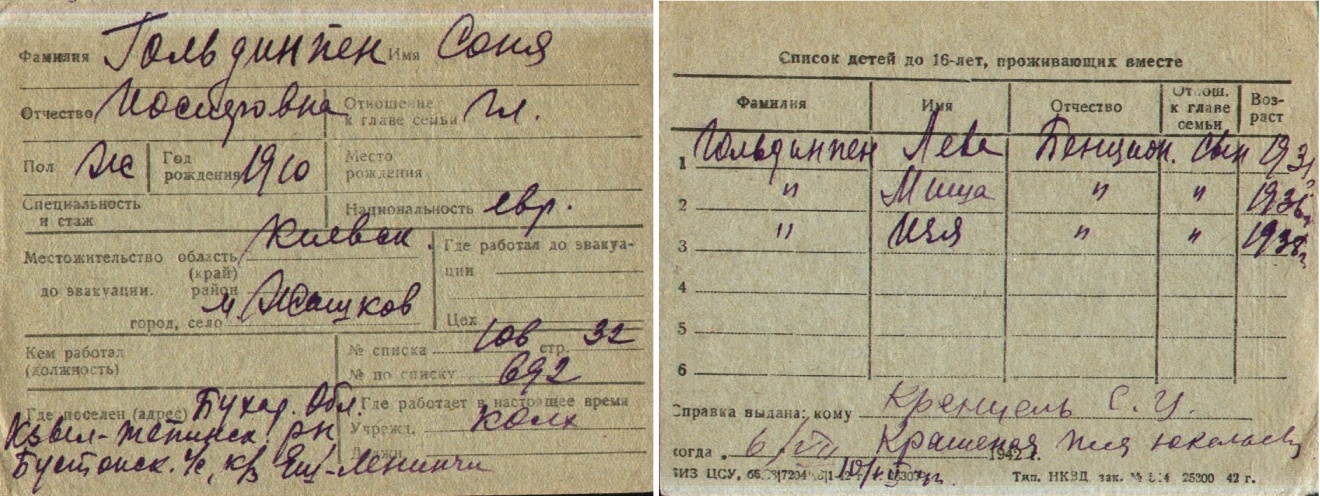 Фамилия Гольдинпен Имя Соня
Отчество Иосифовна Отношение к главе семьи гл.
Пол Ж Год рождения 1910 Место рождения
Специальность и стаж Национальность евр.
Местожительство до эвакуации. область (край) Киевск.
район
город, село м Жашков
Где работал до эвакуации
Цех
Кем работал (должность)
№ списка 10в стр. 32
№ по списку 692
Где поселен (адрес) Бухар. Обл.
Кзыл-Тепинск. рн
Бустонск. с/с, к/з Еш-Ленинчи
Где работает в настоящее время
Учрежд. колх
Должн.
Список детей до 16-лет, проживающих вместе
Фамилия Имя Отчество Отнош. к главе семьи Возраст
1 Гольдинпен Лева Бенцион. сын 1931
2 " Миша " " 1936г
3 " Изя " " 1938г
4
5
6
Справка выдана: кому Кренцель С. Ц.
когда 6/VII 1942 г. Крашеная
БИЗ ЦСУ, Тип. НКВД зак. 25300 42 г.